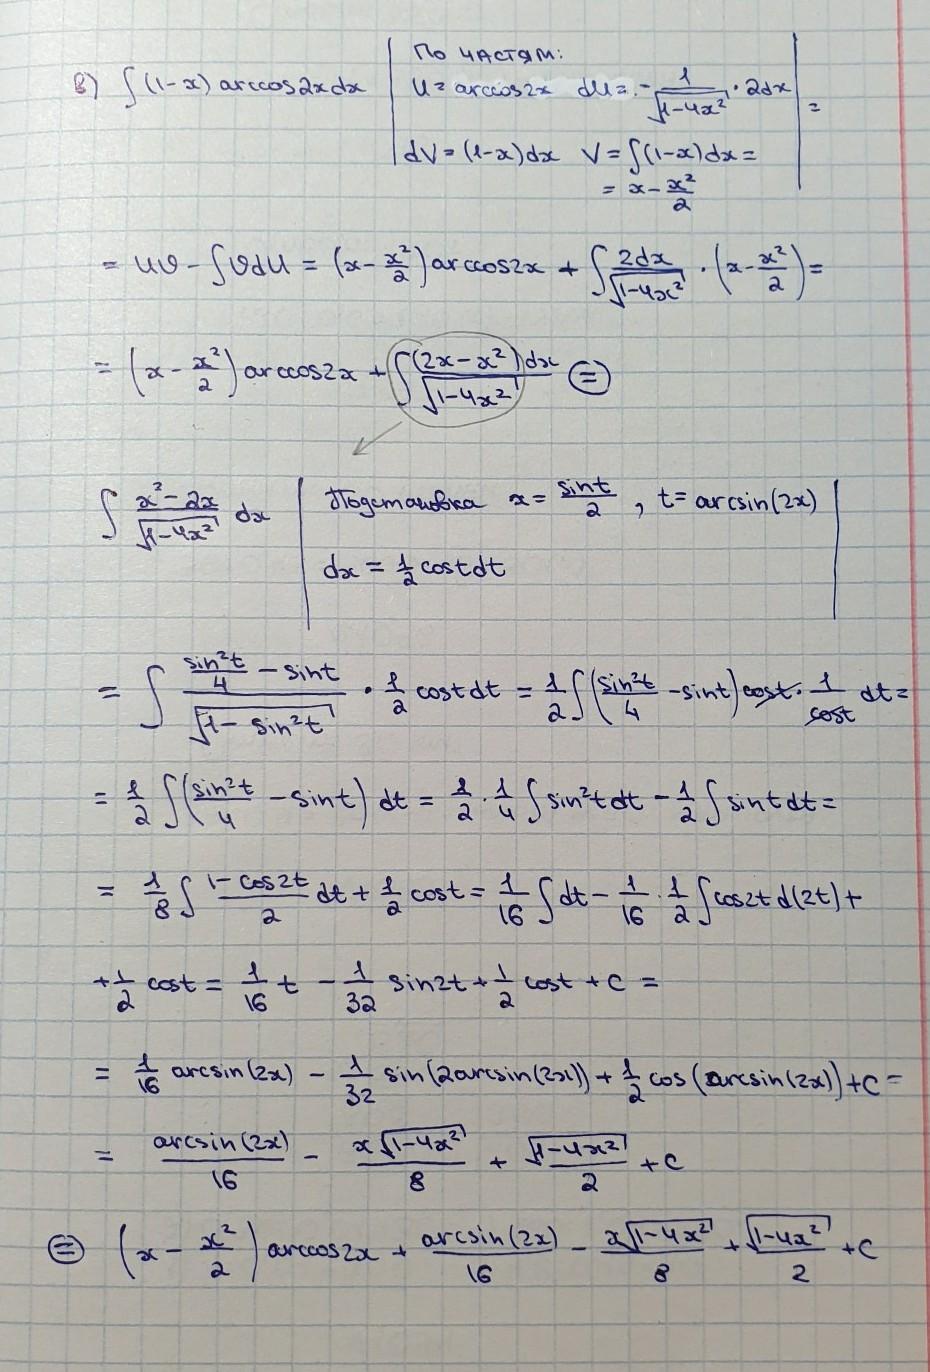 в) ∫ (1-x) arccos2x dx | По частям:
U = arccos2x dU = - 1/√(1-4x²) · 2dx | =
dV = (1-x)dx V = ∫(1-x)dx =
= x - x²/2
= UV - ∫VdU = (x - x²/2) arccos2x + ∫ 2dx/√(1-4x²) · (x - x²/2) =
= (x - x²/2) arccos2x + ∫ (2x - x²)dx/√(1-4x²) ⊜
∫ (x² - 2x)/√(1-4x²) dx | Подстановка x = sint/2 , t = arcsin(2x) |
dx = 1/2 cost dt
= ∫ (sin²t/4 - sint)/√(1 - sin²t) · 1/2 cost dt = 1/2 ∫ (sin²t/4 - sint) cost · 1/cost dt =
= 1/2 ∫ (sin²t/4 - sint) dt = 1/2 · 1/4 ∫ sin²t dt - 1/2 ∫ sint dt =
= 1/8 ∫ (1 - cos2t)/2 dt + 1/2 cost = 1/16 ∫ dt - 1/16 · 1/2 ∫ cos2t d(2t) +
+ 1/2 cost = 1/16 t - 1/32 sin2t + 1/2 cost + C =
= 1/16 arcsin(2x) - 1/32 sin(2arcsin(2x)) + 1/2 cos(arcsin(2x)) + C =
= arcsin(2x)/16 - x√(1-4x²)/8 + √(1-4x²)/2 + C
⊜ (x - x²/2) arccos2x + arcsin(2x)/16 - x√(1-4x²)/8 + √(1-4x²)/2 + C